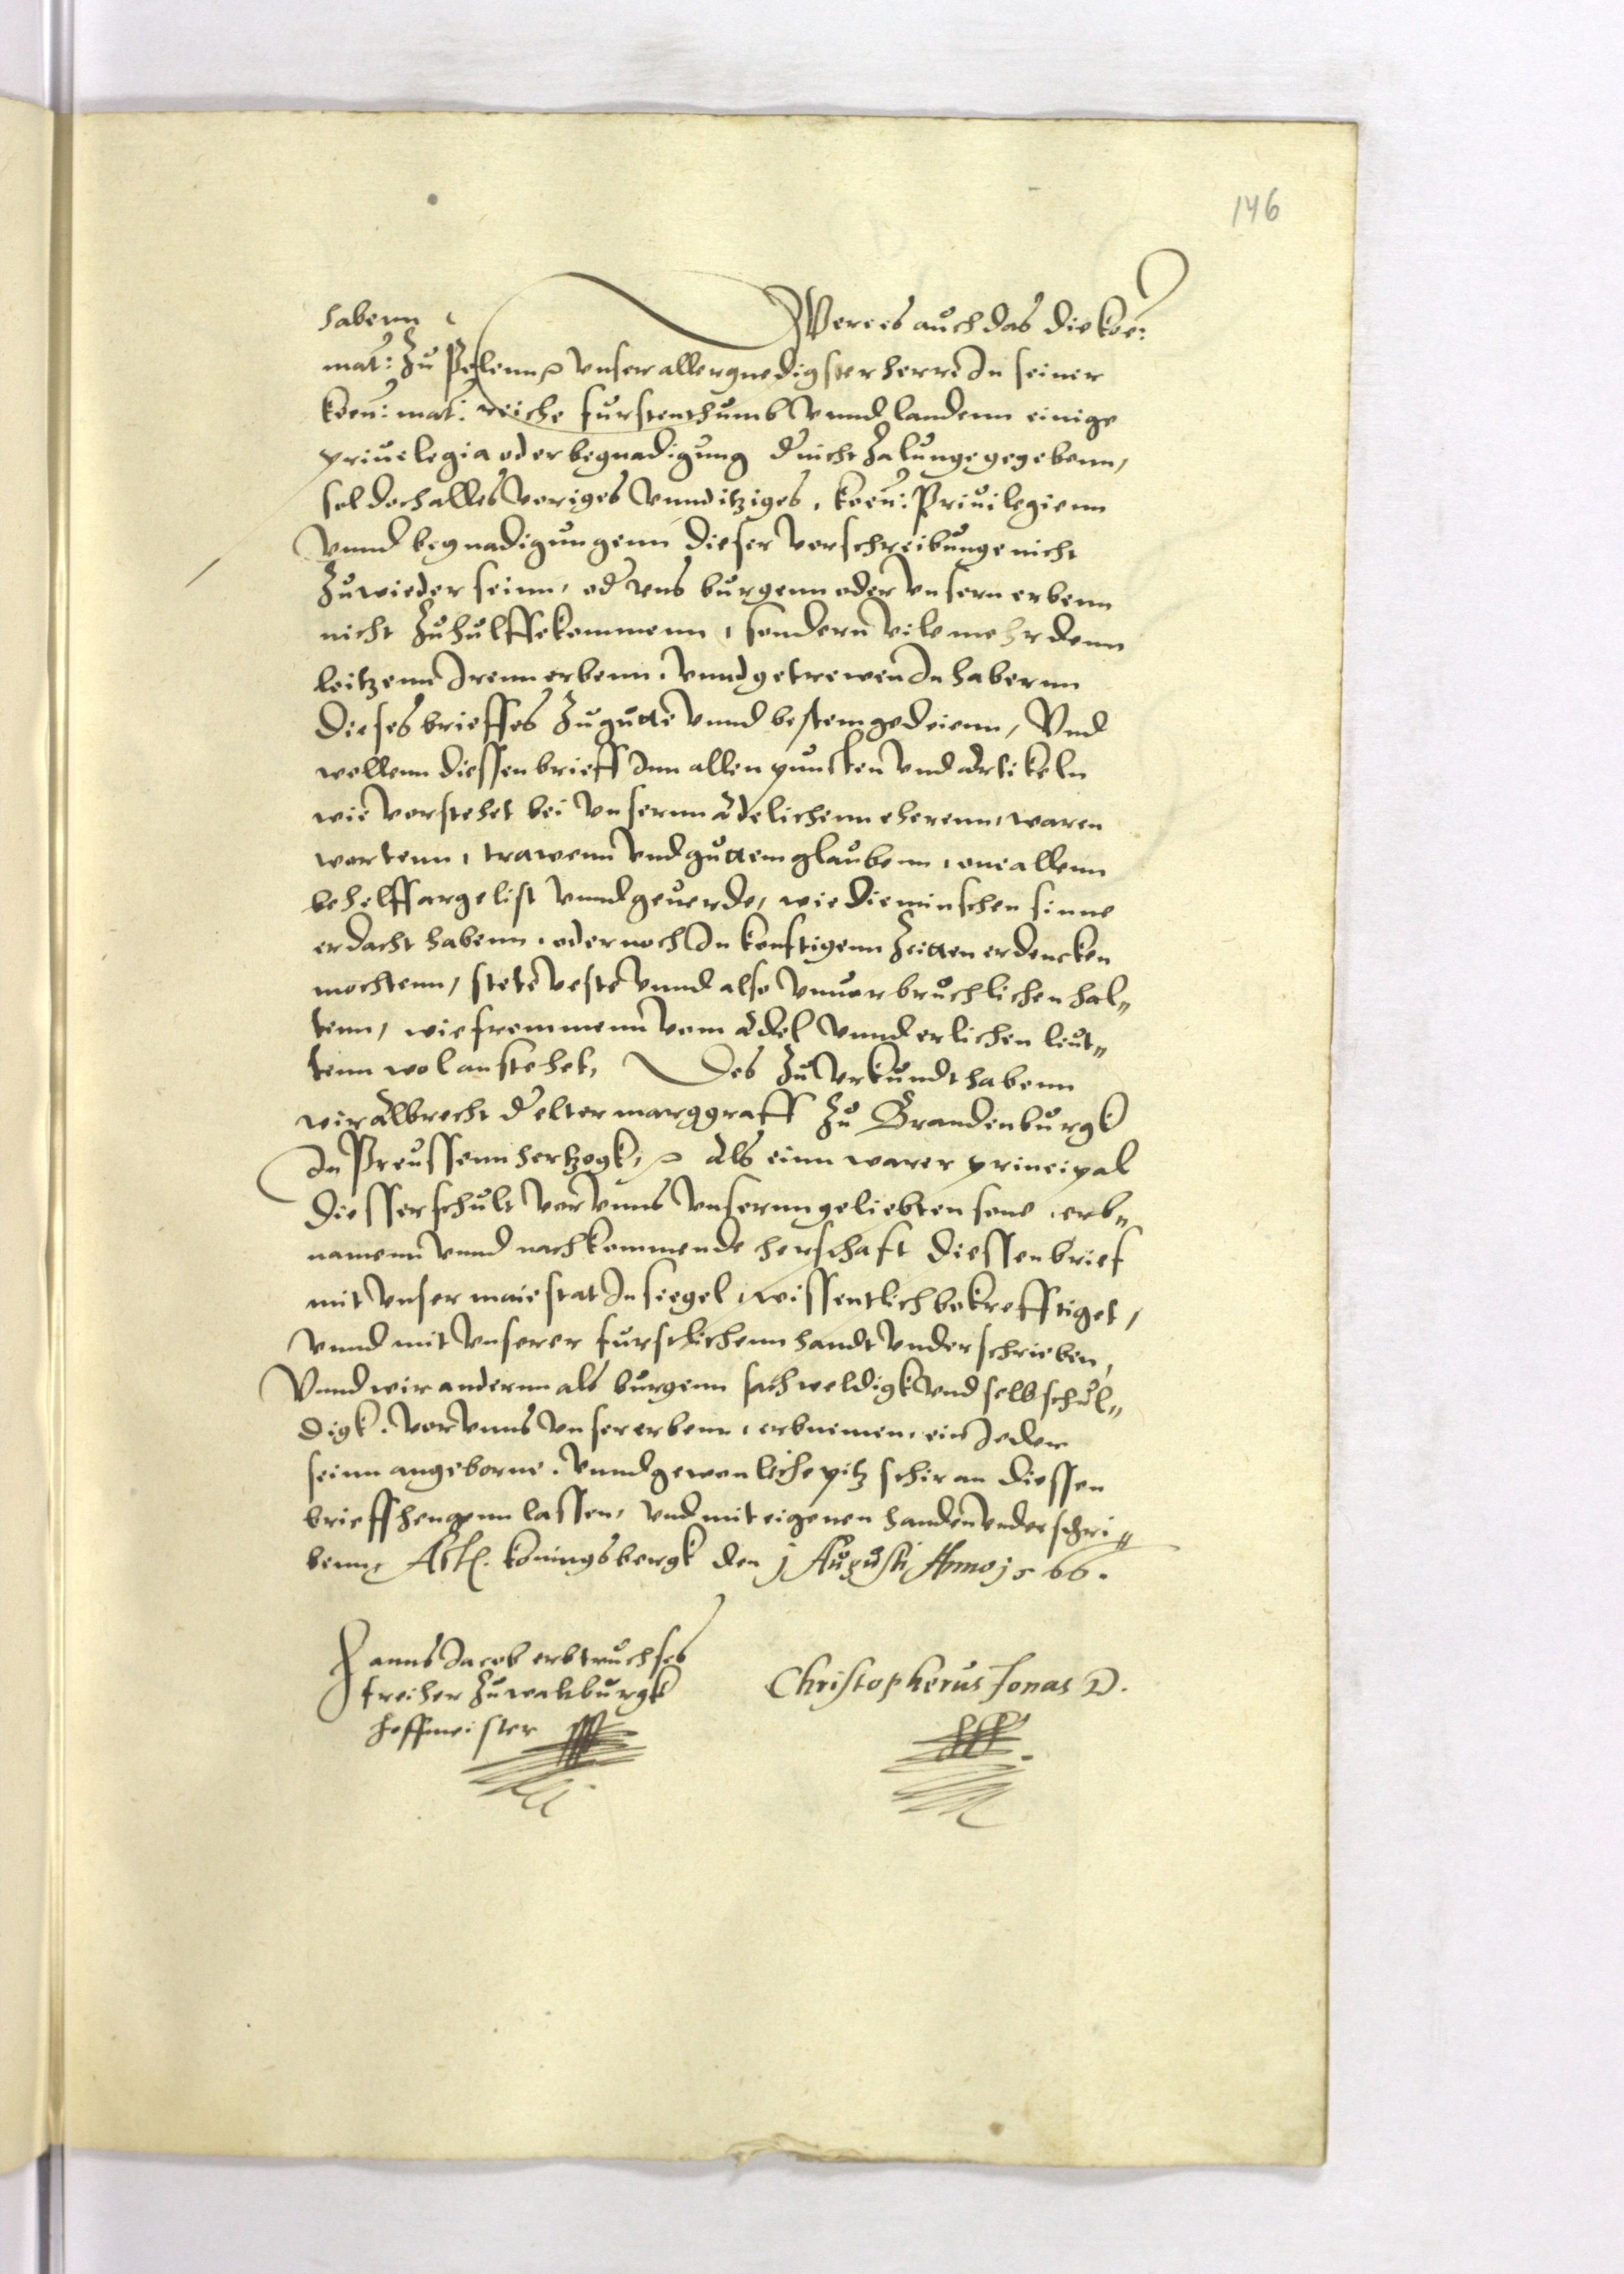 146
habenn Were es auch das die koe:
mat: Zu Polenn unser allergnedigster herre In seiner
koen: mat: reiche furstenthumb vnnd landenn einige
priuelegia oder begnadigung d nicht Zalunge gegebenn,
sol doch alles voriges vnnd itziges, koen: Priuilegienn
vnnd begnadigungenn dieser vorschreibunge nicht
Zuwieder seinn, od vns burgenn oder vnsern erbenn
nicht Zuhulffe kommenn, sondern vile mehr denn
leitzenn Irenn erbenn. vnnd getrewen Inhabernn
dieses brieffes Zu gutte vnnd bestem gedeienn, Vnd
wollenn diessen brieff Inn allen puncten vnd Artikeln
wie vorstehet bei vnsernn Adelichenn eherenn, waren
wortenn, trawenn vnd guttem glaubenn, one allenn
behelff argelist vnnd geuerde, wie die minschen sinne
erdacht habenn, oder noch In konftigenn Zeitten erdencken
mochtenn, stete veste vnnd also vnuorbruchlichen hal„
tenn, wie frommenn vom Adel vnnd erlichen leut„
tenn wol anstehet, Des Zu vrkundt habenn
wir Albrecht d elter marggraff Zu Brandenburgk
In Preussenn hertzogk, Als einn warer principal
diesser schult vor vnns vnsernn geliebten sone, erb„
namenn vnnd nachkommende herschaft diessen brief
mit vnser maiestat Insiegel, wissentlich bekrefftiget,
vnnd mit vnserer furstlichenn handt vnderschrieben,
Vnnd wir andernn als burgenn sachweldigk vnd selbschul„
digk. vor vnns vnser erbenn, erbnemen, ein Jeder
seinn angeborne. vnnd gewonliche pitzschir an diessen
brieff hengenn lassen, vnd mit eigenen handen vnderschri„
benn, Actl. koningsbergk den j Augusti Anno j5 66.
Hanns Jacob erbtruchses
freiher Zu walburgk
hoffmeister
Christopherus Jonas D.